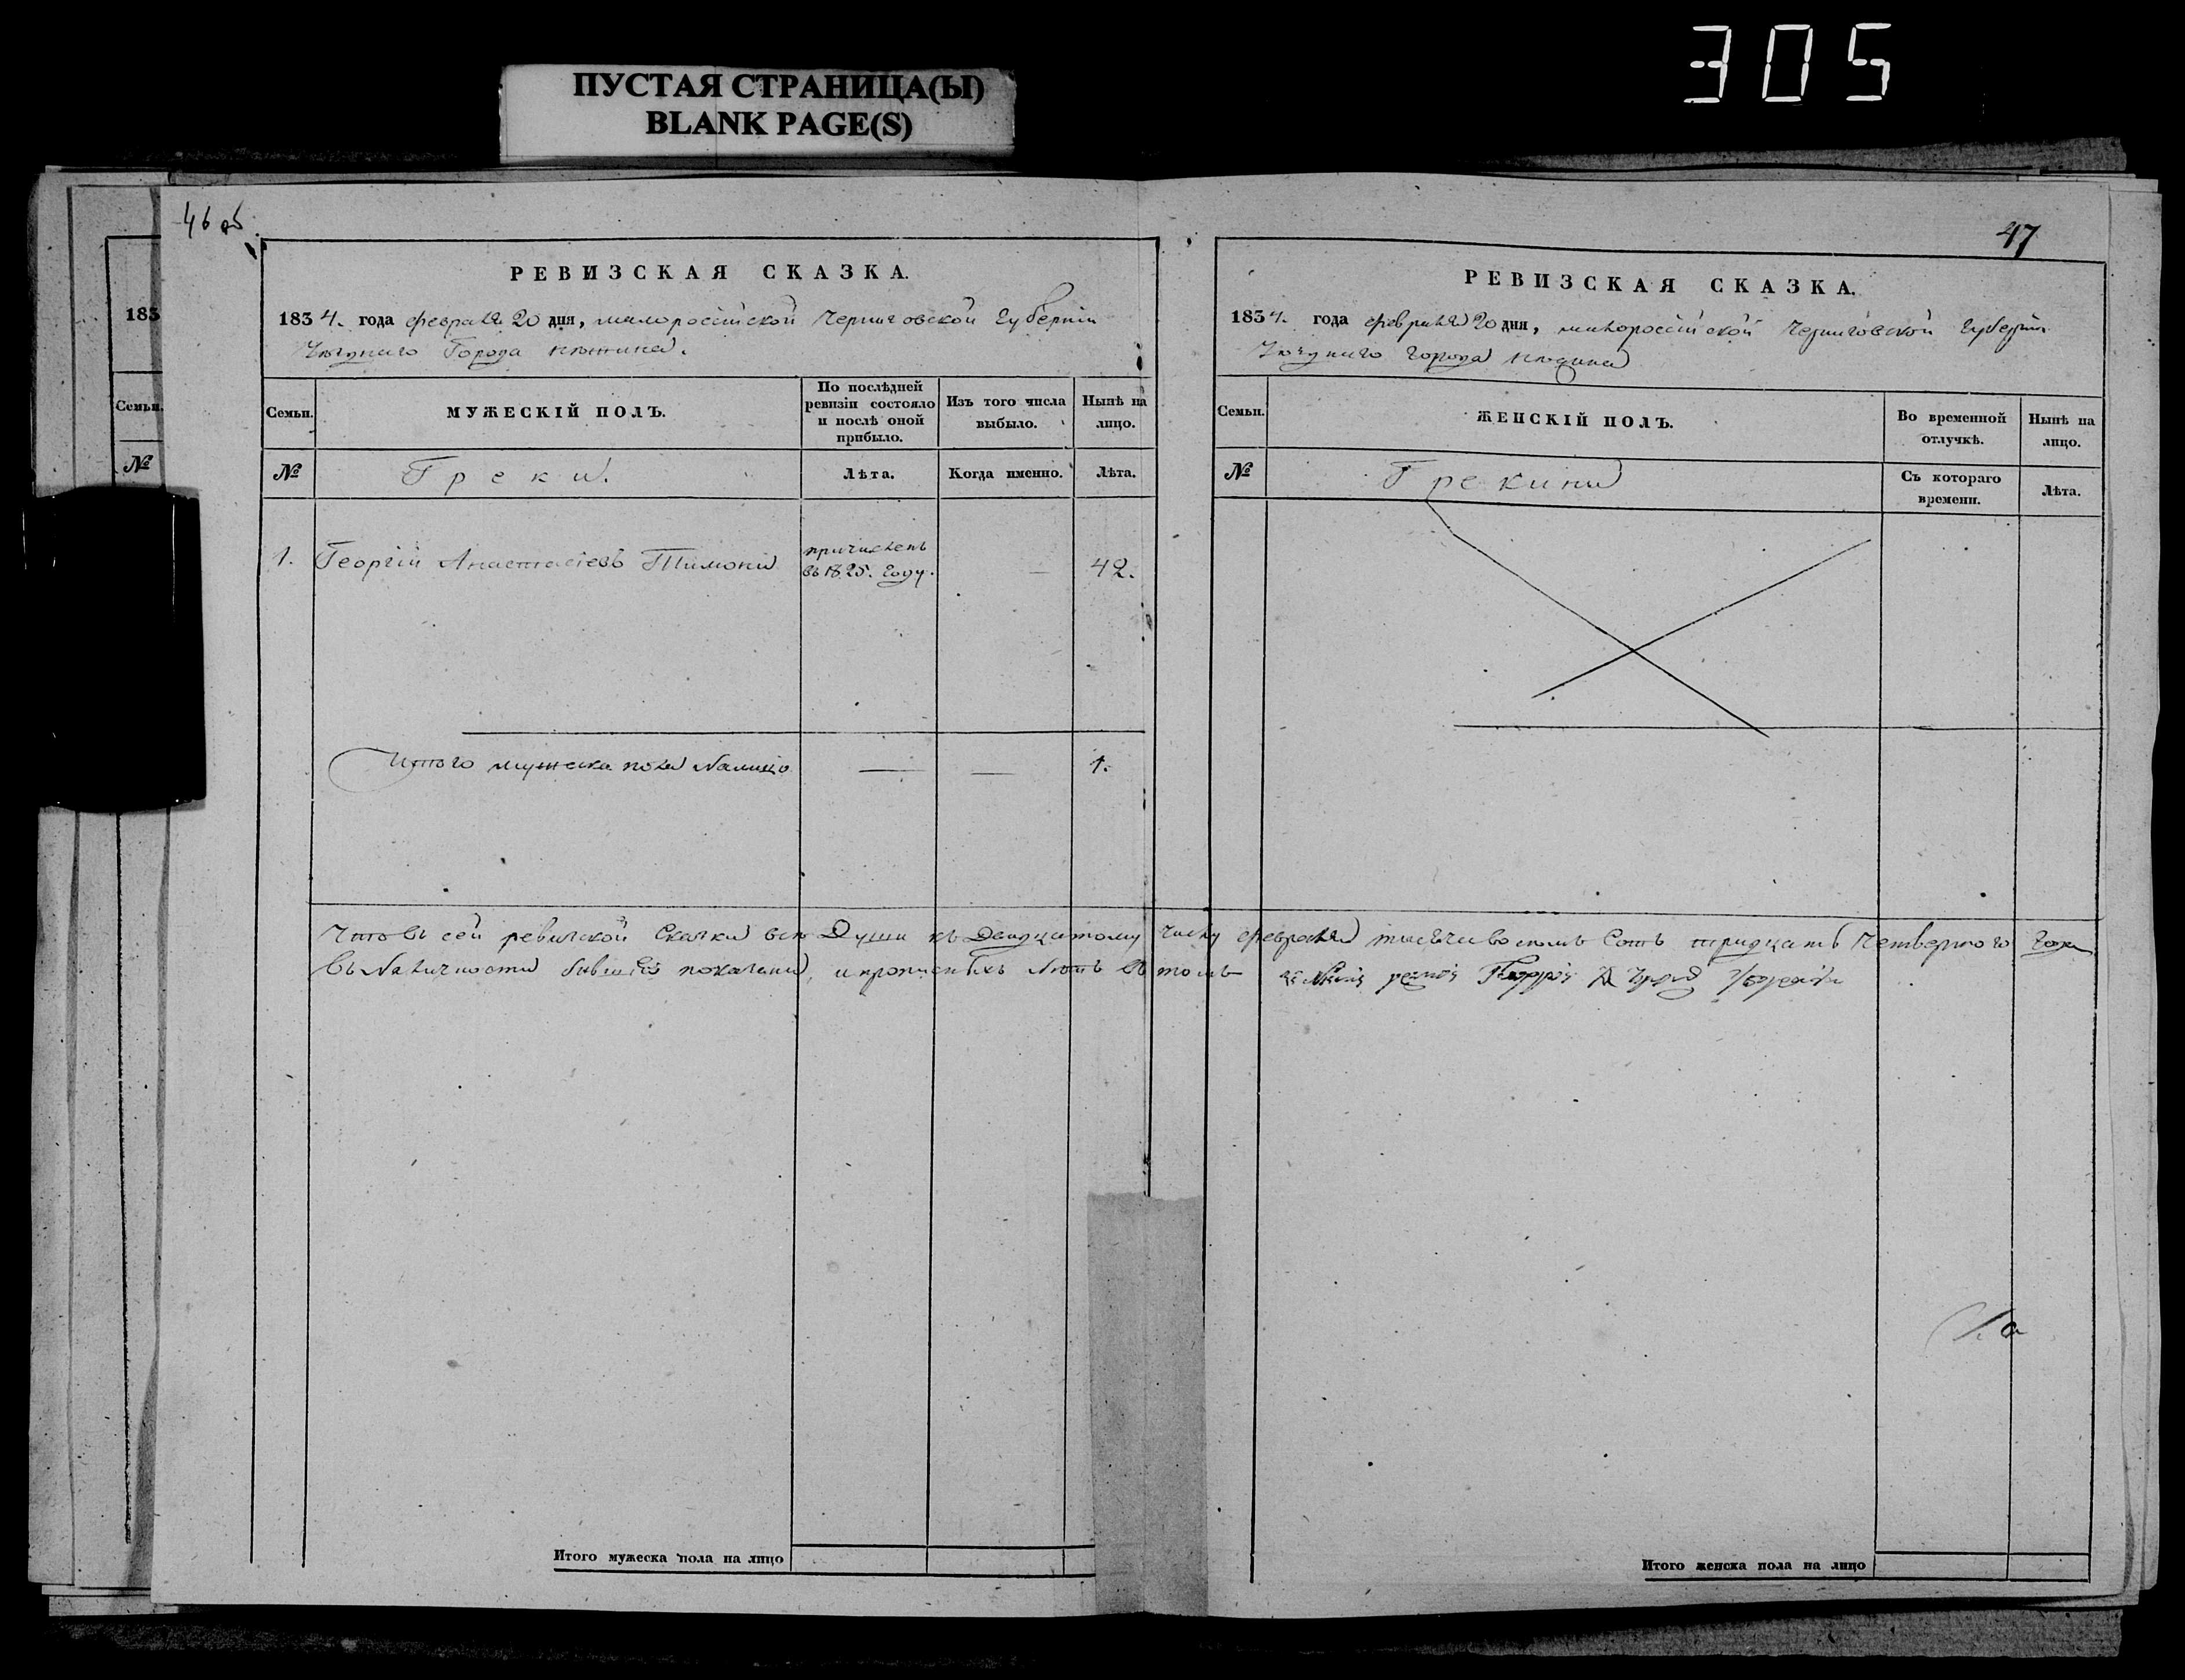 305
ПУСТАЯ СТРАНИЦА(Ы)
BLANK PAGE(S)
183
Семьи.
№
46 об.
РЕВИЗСКАЯ СКАЗКА.
1834. года февраля 20 дня, малороссійской Черниговской Губерніи
Города Нѣжина.
Семьи.
МУЖЕСКІЙ ПОЛЪ.
По послѣдней ревизіи состояло и послѣ оной прибыло.
Изъ того числа выбыло.
Нынѣ на лицо.
№
Греки.
Лѣта.
Когда именно.
Лѣта.
1. Георгій Анастасіевъ Тимони
причисленъ въ 1825. году.
—
42.
Итого мужеска пола налицо
—
—
1.
47
РЕВИЗСКАЯ СКАЗКА.
1834. года февраля 20 дня, малороссійской Черниговской Губерніи
города Нѣжина
Семьи.
ЖЕНСКІЙ ПОЛЪ.
Во временной отлучкѣ.
Нынѣ на лицо.
№
Грекини
Съ котораго времени.
Лѣта.
Что въ сей ревизской Сказки всѣ Души къ Двадцатому числу февраля тысяча восемь Сотъ тридцать Четвертого года
въ Наличности бывшіе показаны, и прописныхъ нѣтъ въ томъ
Итого мужеска пола на лицо
Итого женска пола на лицо